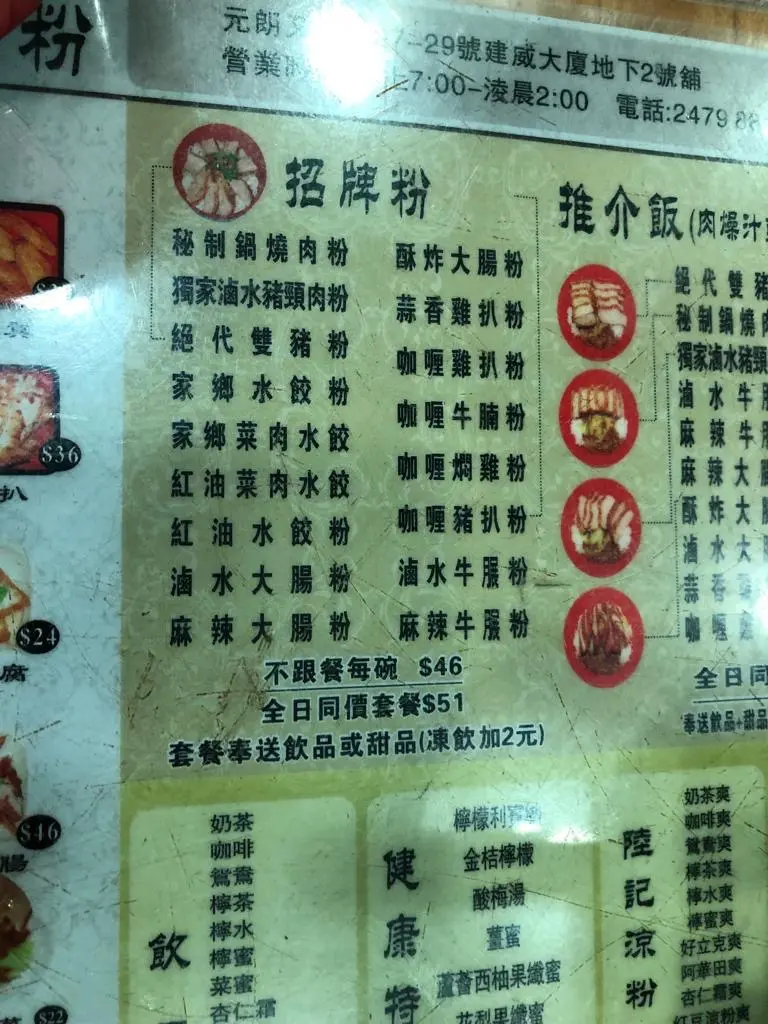 粉
元朗
7-29號建威大廈地下2號舖
營業時
7:00-淩晨2:00 電話:2479 88
招牌粉
秘制鍋燒肉粉
獨家滷水豬頸肉粉
絕代雙豬粉
家鄉水餃粉
家鄉菜肉水餃
紅油菜肉水餃
紅油水餃粉
滷水大腸粉
麻辣大腸粉
酥炸大腸粉
蒜香雞扒粉
咖喱雞扒粉
咖喱牛腩粉
咖喱燜雞粉
咖喱豬扒粉
滷水牛𦟌粉
麻辣牛𦟌粉
不跟餐每碗 $46
全日同價套餐$51
套餐奉送飲品或甜品(凍飲加2元)
推介飯(肉燥汁
絕代雙豬
秘制鍋燒肉
獨家滷水豬頸
滷水牛
麻辣牛
麻辣大腸
酥炸大腸
滷水大
蒜香
咖喱
全日同
奉送飲品+甜品
$36
扒
$24
腐
$46
腸
$22
飲
奶茶
咖啡
鴛鴦
檸茶
檸水
檸蜜
菜蜜
杏仁霜
健康特
檸檬利賓
金桔檸檬
酸梅湯
薑蜜
蘆薈西柚果纖蜜
花梨果纖蜜
陸記涼粉
奶茶爽
咖啡爽
鴛鴦爽
檸茶爽
檸水爽
檸蜜爽
好立克爽
阿華田爽
杏仁霜爽
紅豆涼粉爽